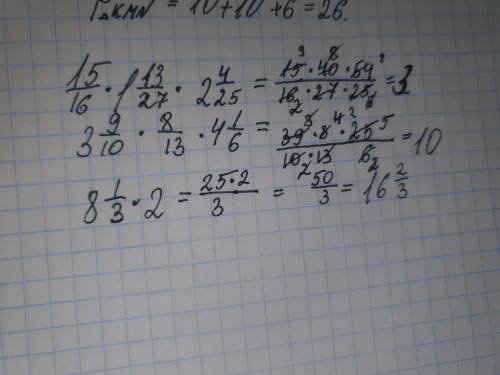 P▵KMN = 10 + 10 + 6 = 26.
15/16 · 1 13/27 · 2 4/25 = 15 · 40 · 54 / 16 · 27 · 25 = 3
3 9/10 · 8/13 · 4 1/6 = 39 · 8 · 25 / 10 · 13 · 6 = 10
8 1/3 · 2 = 25 · 2 / 3 = 50/3 = 16 2/3